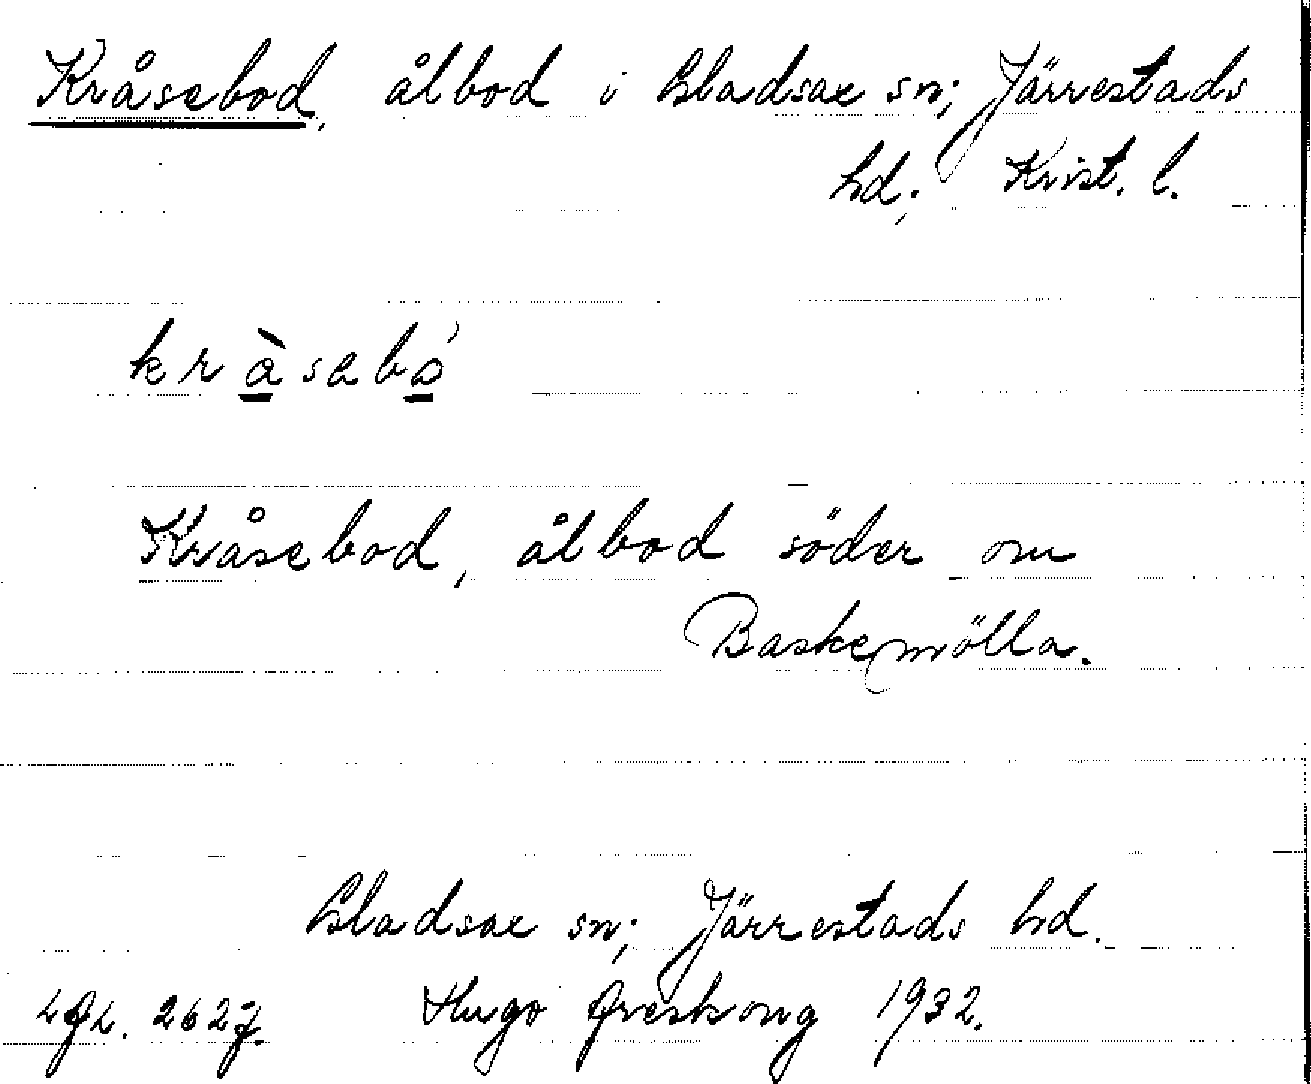 Kråsebod, ålbod i Gladsax sn; Järrestads
hd; Krist. l.
kràsabó
Kråsebod, ålbod söder om
Baskemölla.
Gladsax sn; Järrestads hd.
Hugo Areskoug 1932.